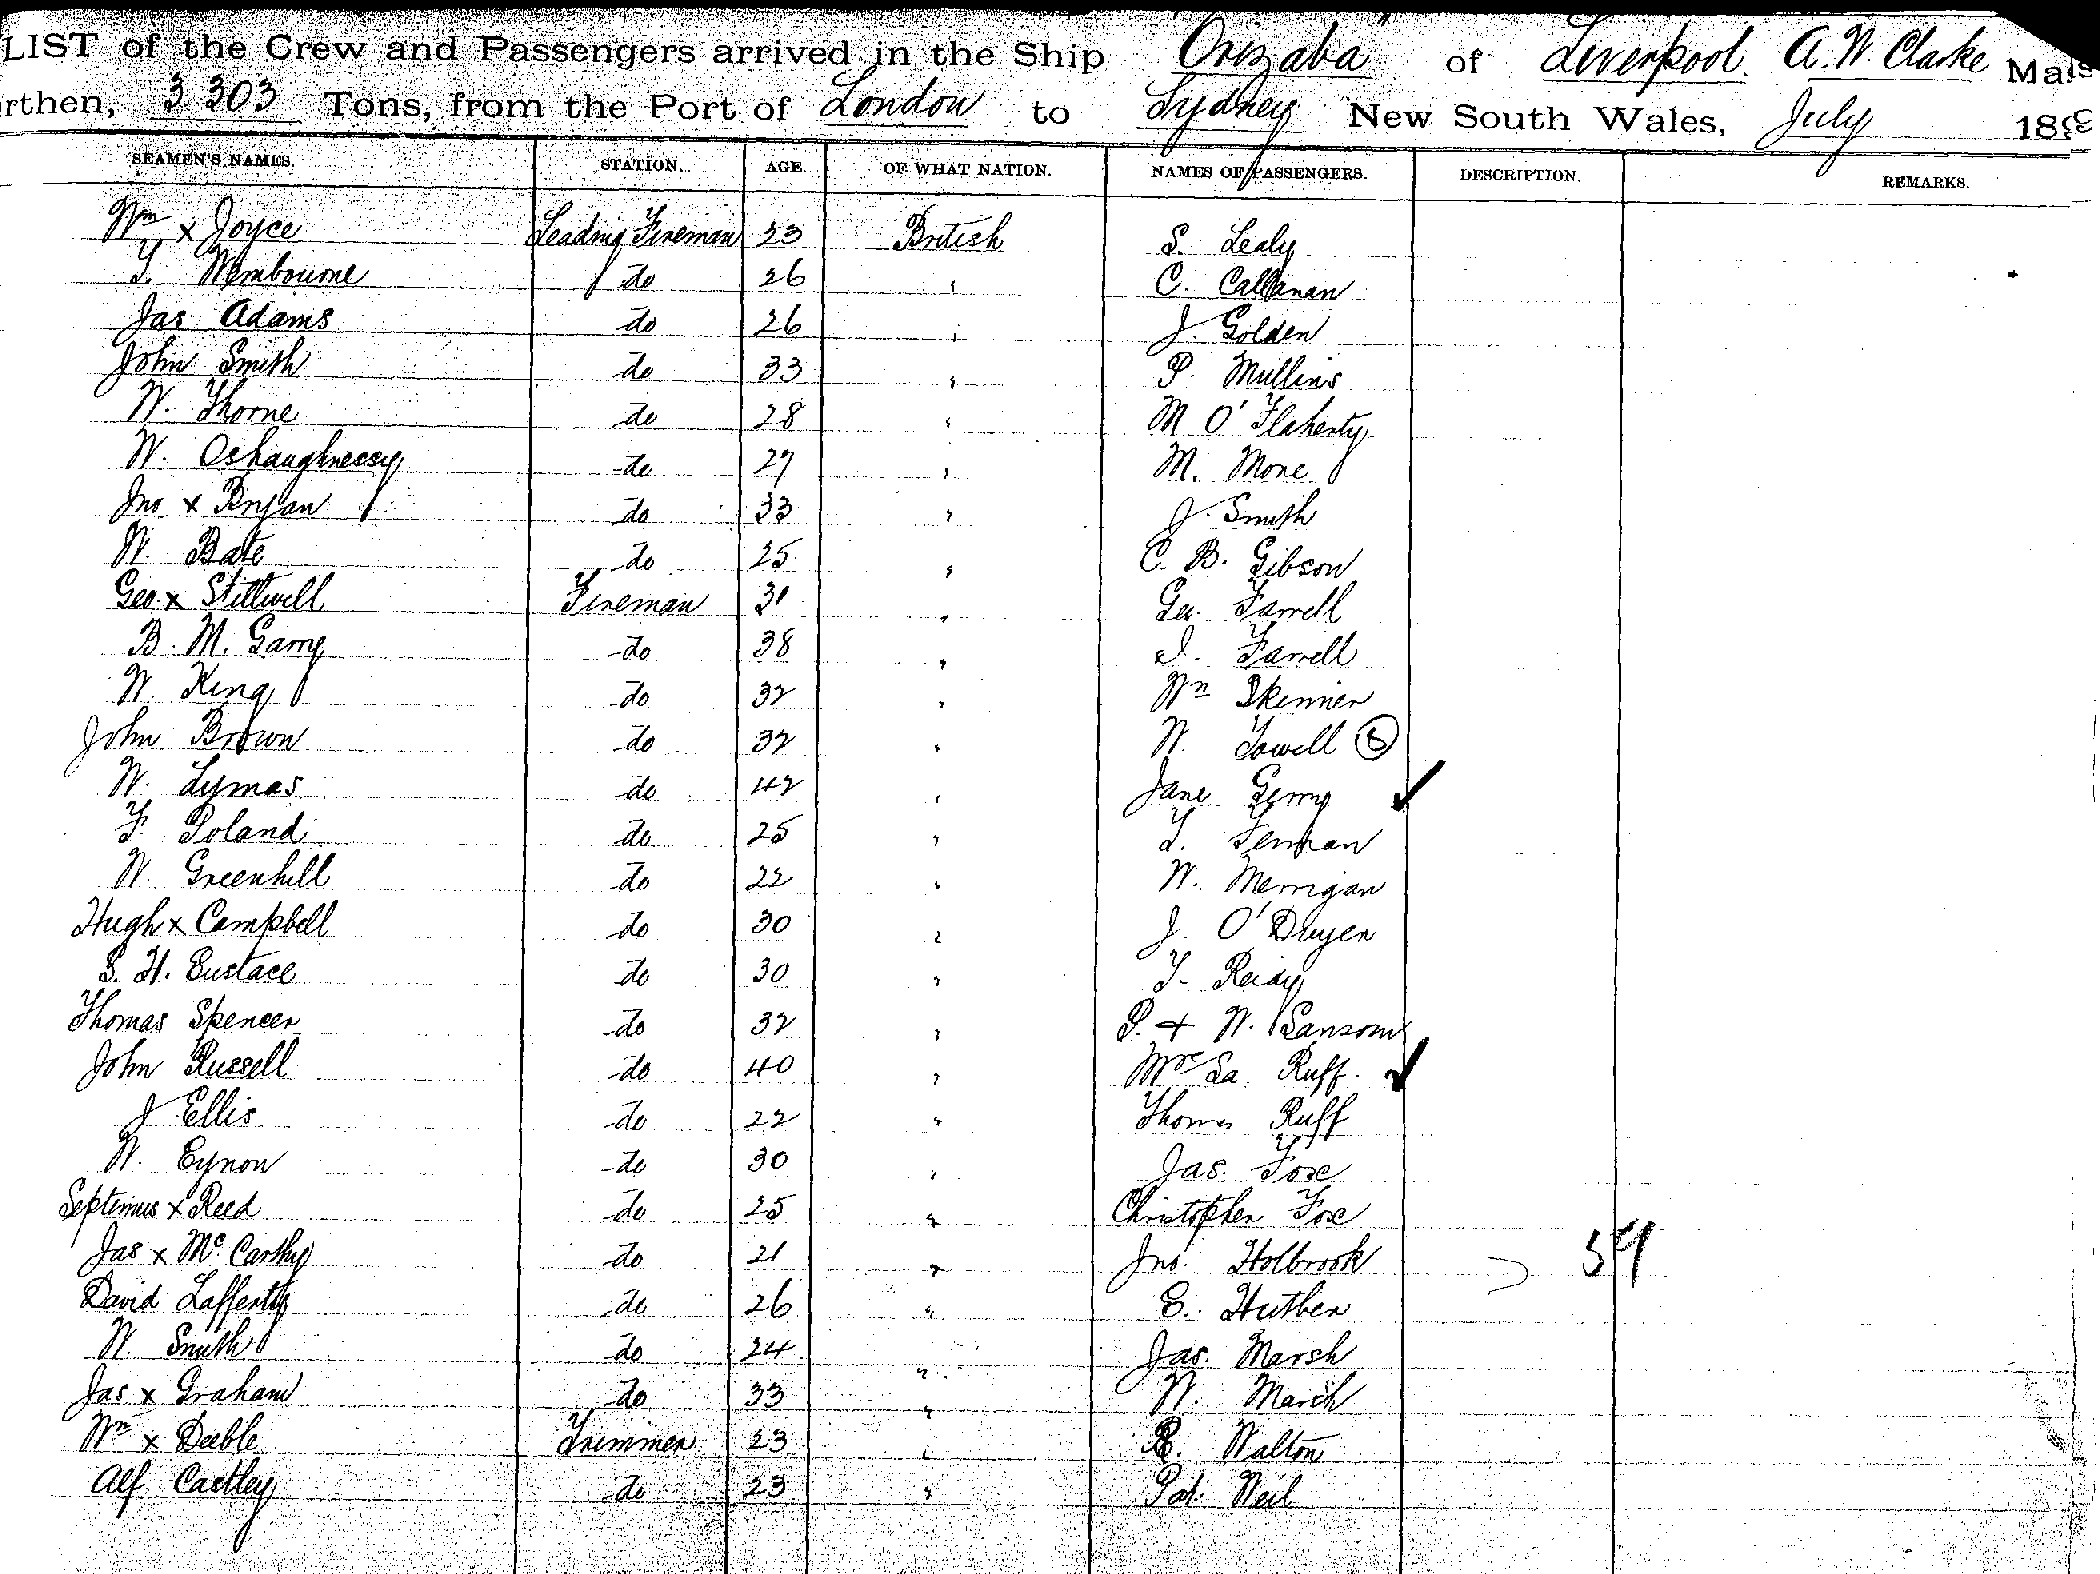 LIST of the Crew and Passengers arrived in the Ship "Orizaba" of Liverpool. A. W. Clarke
rthen, 3 303 Tons, from the Port of London to Sydney New South Wales, July 189
SEAMEN'S NAMES. STATION. AGE OF WHAT NATION. NAMES OF PASSENGERS. DESCRIPTION. REMARKS.
Wm x Joyce Leading Fireman 23 British S. Lealy
T. Wimbourne do 26 " C. Callanan
Jas Adams do 26 " J. Golden
John Smith do 33 " P. Mullins
W. Thorne do 28 " M O'Flaherty
W. Oshaughnessy do 27 " M. Mone
Jno x Bryan do 33 " J. Smith
W. Bate do 25 " C. B. Gibson
Geo. x Stillwell Fireman 31 " Geo. Farrell
B. M. Garry do 38 " J. Farrell
W. King do 32 " Wm Skinner
John Brown do 32 " W. Towell 6
W. Lymas do 42 " Jane Gerry ✓
F. Poland do 25 " T.
W. Greenhill do 22 " W. Merrigan
Hugh x Campbell do 30 " J. O'Dwyer
S. H. Eustace do 30 " T. Reidy
Thomas Spencer do 32 " P. + W. Sansom
John Russell do 40 " Mrs Sa Ruff. ✓
J Ellis do 22 " Thomas Ruff
W. Eynon do 30 " Jas. Foxe
Septimus x Reed do 25 " Christopher Foxe
Jas x Mc Carthy do 21 " Jno. Holbrook 54
David Lafferty do 26 " E. Huther
W. Smith do 24 " Jas. Marsh
Jas x Graham do 33 " W. March
Wm x Deeble Trimmer 23 " R. Walton
Alf Castley do 23 " Pat. Neil